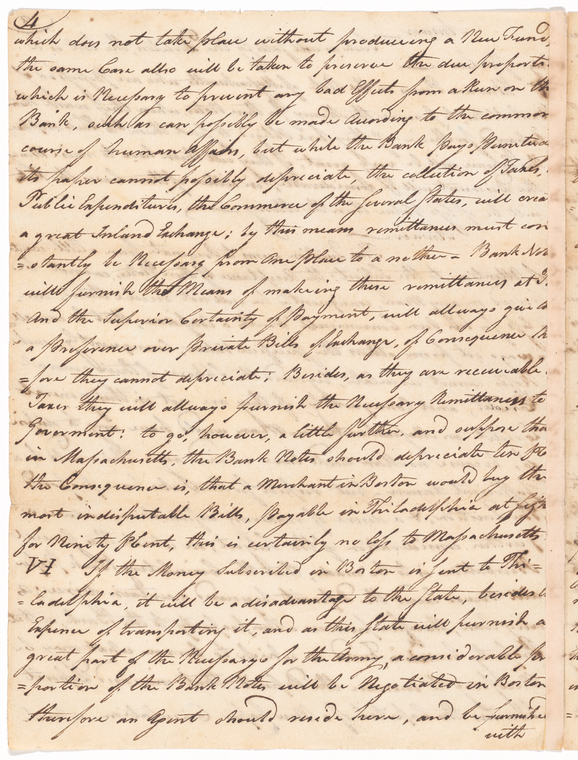 4
which does not take place without produceing a New Fund,
the same Care allso will be taken to preserve the due proporti
which is Necessary to prevent any bad Effects from a Run on th
Bank, such as can possibly be made According to the common
course of human Affairs, but while the Bank pays Punctua
its paper cannot possibly depreciate the collection of Taxes,
Public Expenditures, the Commerce of the several States, will crea
a great Inland Exchange; by this means remittances must con
=stantly be Necessary from One place to a nother - Bank No
will furnish the Means of makeing these remittances at
And the Superior Certainty of Payment, will allways give
a Preference over Private Bills of Exchange, of Consequence th
=fore they cannot depreciate; Besides, as they are receivable
Taxes they will allways furnish the Necessary Remittances to
Goverment: to go, however, a little further, and suppose tha
in Massachusetts, the Bank Notes should depreciate ten
the Consequence is, that a Merchant in Boston would buy the
most indisputable Bills, payable in Philadelphia at sigh
for Ninety PCent, this is certainly no loss to Massachusetts
VI If the Money Subscribed in Boston is sent to Phi=
=ladelphia, it will be a disadvantage to the State, besides
Expence of transporting it, and as this State will furnish a
great part of the Necessarys for the Army, a considerable
=portion of the Bank Notes will be Negotiated in Boston
therefore an Agent should reside here, and be furnishe
with